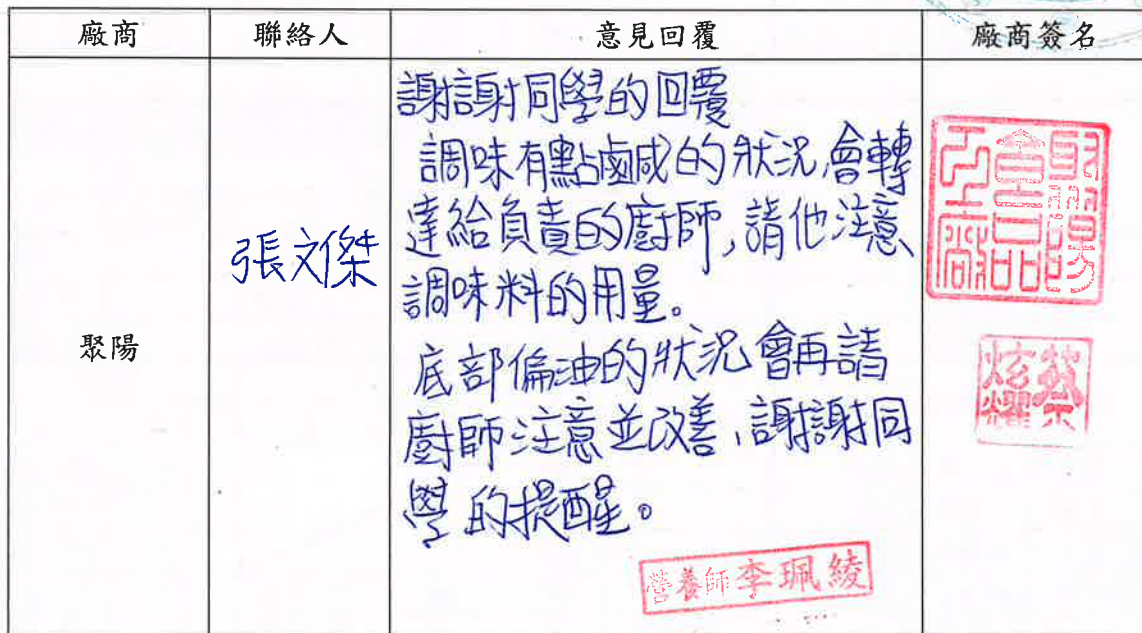 廠商 聯絡人 意見回覆 廠商簽名
聚陽
張文傑
謝謝同學的回覆
調味有點鹵咸的狀況,會轉
達給負責的廚師,請他注意
調味料的用量。
底部偏油的狀況會再請
廚師注意並改善,謝謝同
學的提醒。
營養師李珮綾
聚陽食品工廠
蔡炫耀